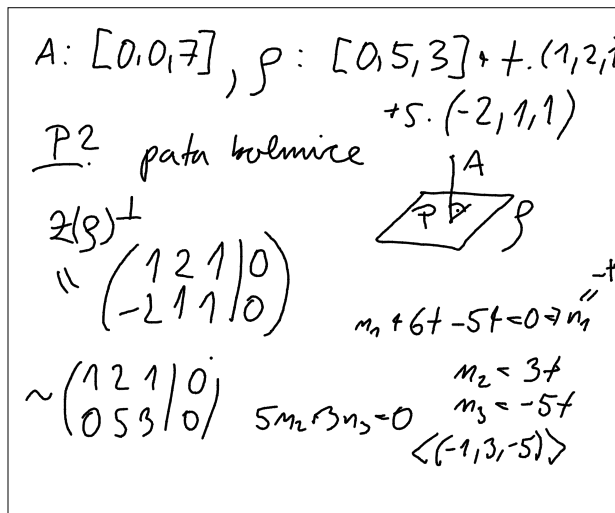 A: [0,0,7], ρ: [0,5,3] + t.(1,2,1
+s.(-2,1,1)
P? pata kolmice
A
Z(ρ)^⊥
P ρ
"
(1 2 1 | 0
-2 1 1 | 0)
n₁ + 6t - 5t = 0 ⇒ n₁
"
-t
~ (1 2 1 | 0
0 5 3 | 0)
5n₂+3n₃=0
n₂ = 3t
n₃ = -5t
<(-1,3,-5)>